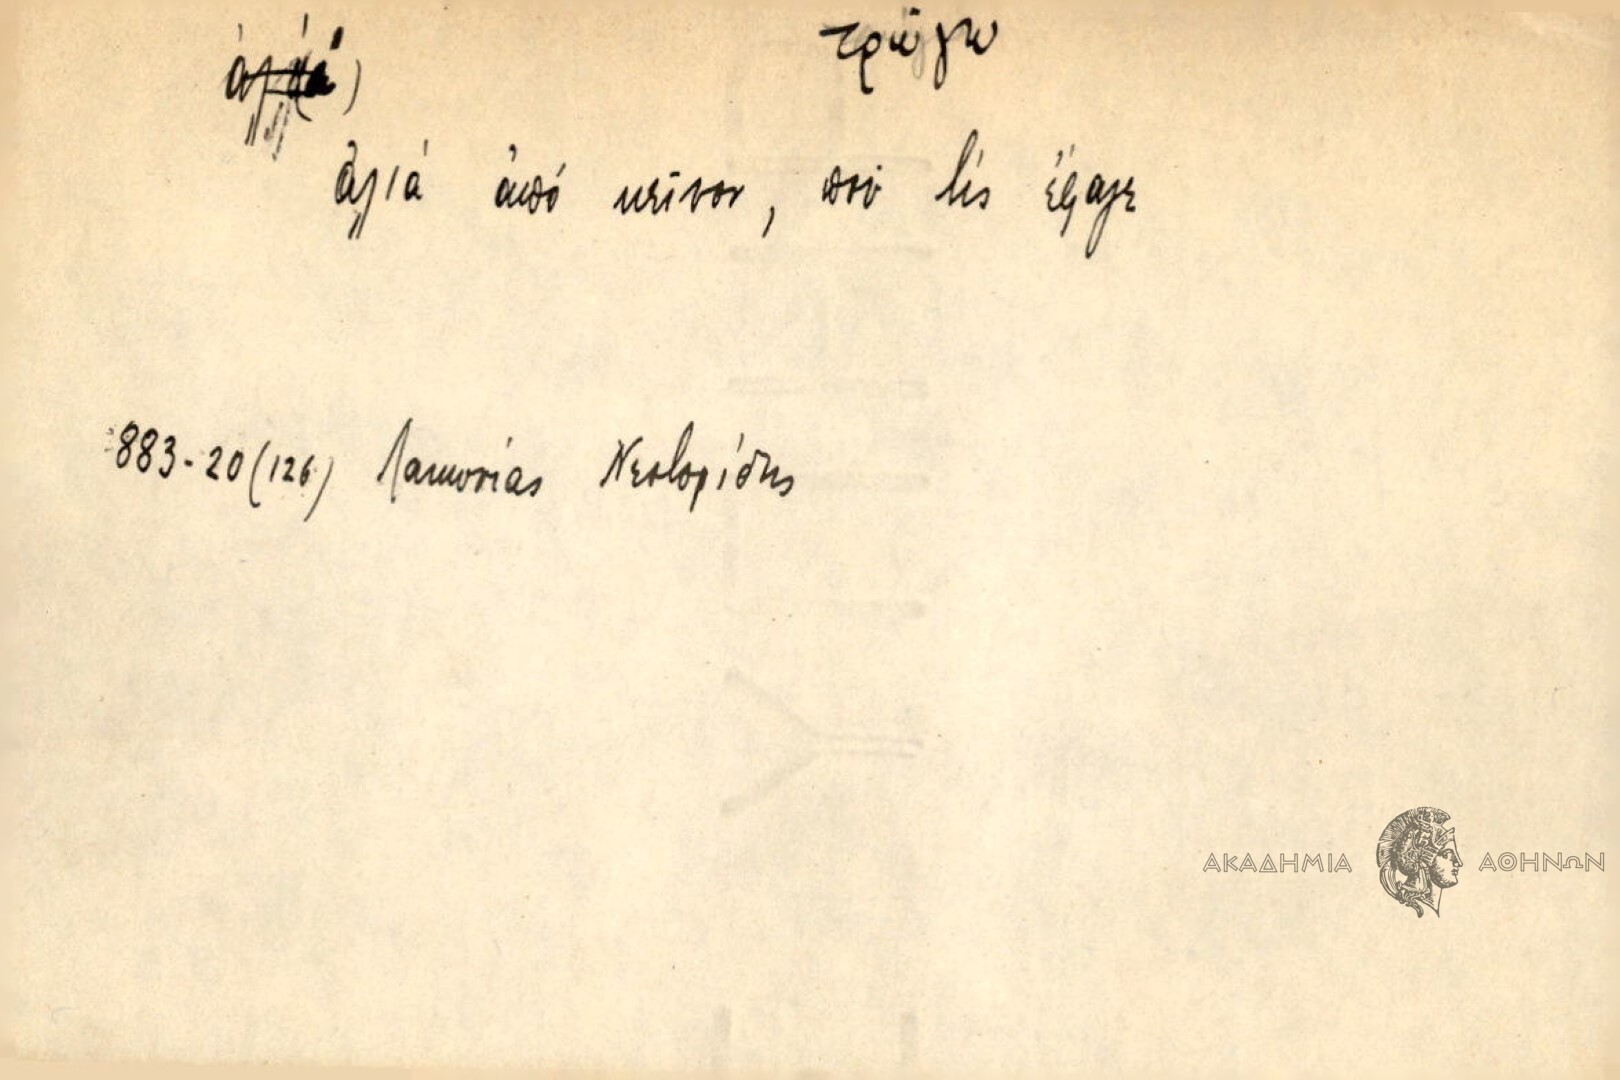 τρώγω
ἀλιά ἀπό κεῖνον, πού τίς ἔφαγε
883-20 (126) Λακωνίας Νεστορίδης
ΑΚΑΔΗΜΙΑ ΑΘΗΝΩΝ